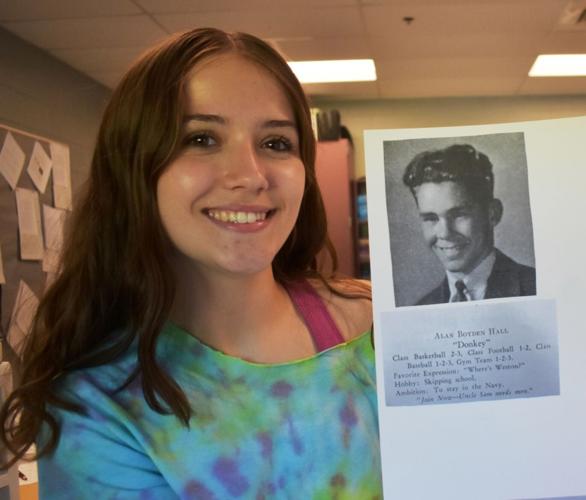 ALAN BOYDEN HALL
"Donkey"
Class Basketball 2-3, Class Football 1-2, Class
Baseball 1-2-3, Gym Team 1-2-3.
Favorite Expression: "Where's Weston?"
Hobby: Skipping school.
Ambition: To stay in the Navy.
"Join Now—Uncle Sam needs men."